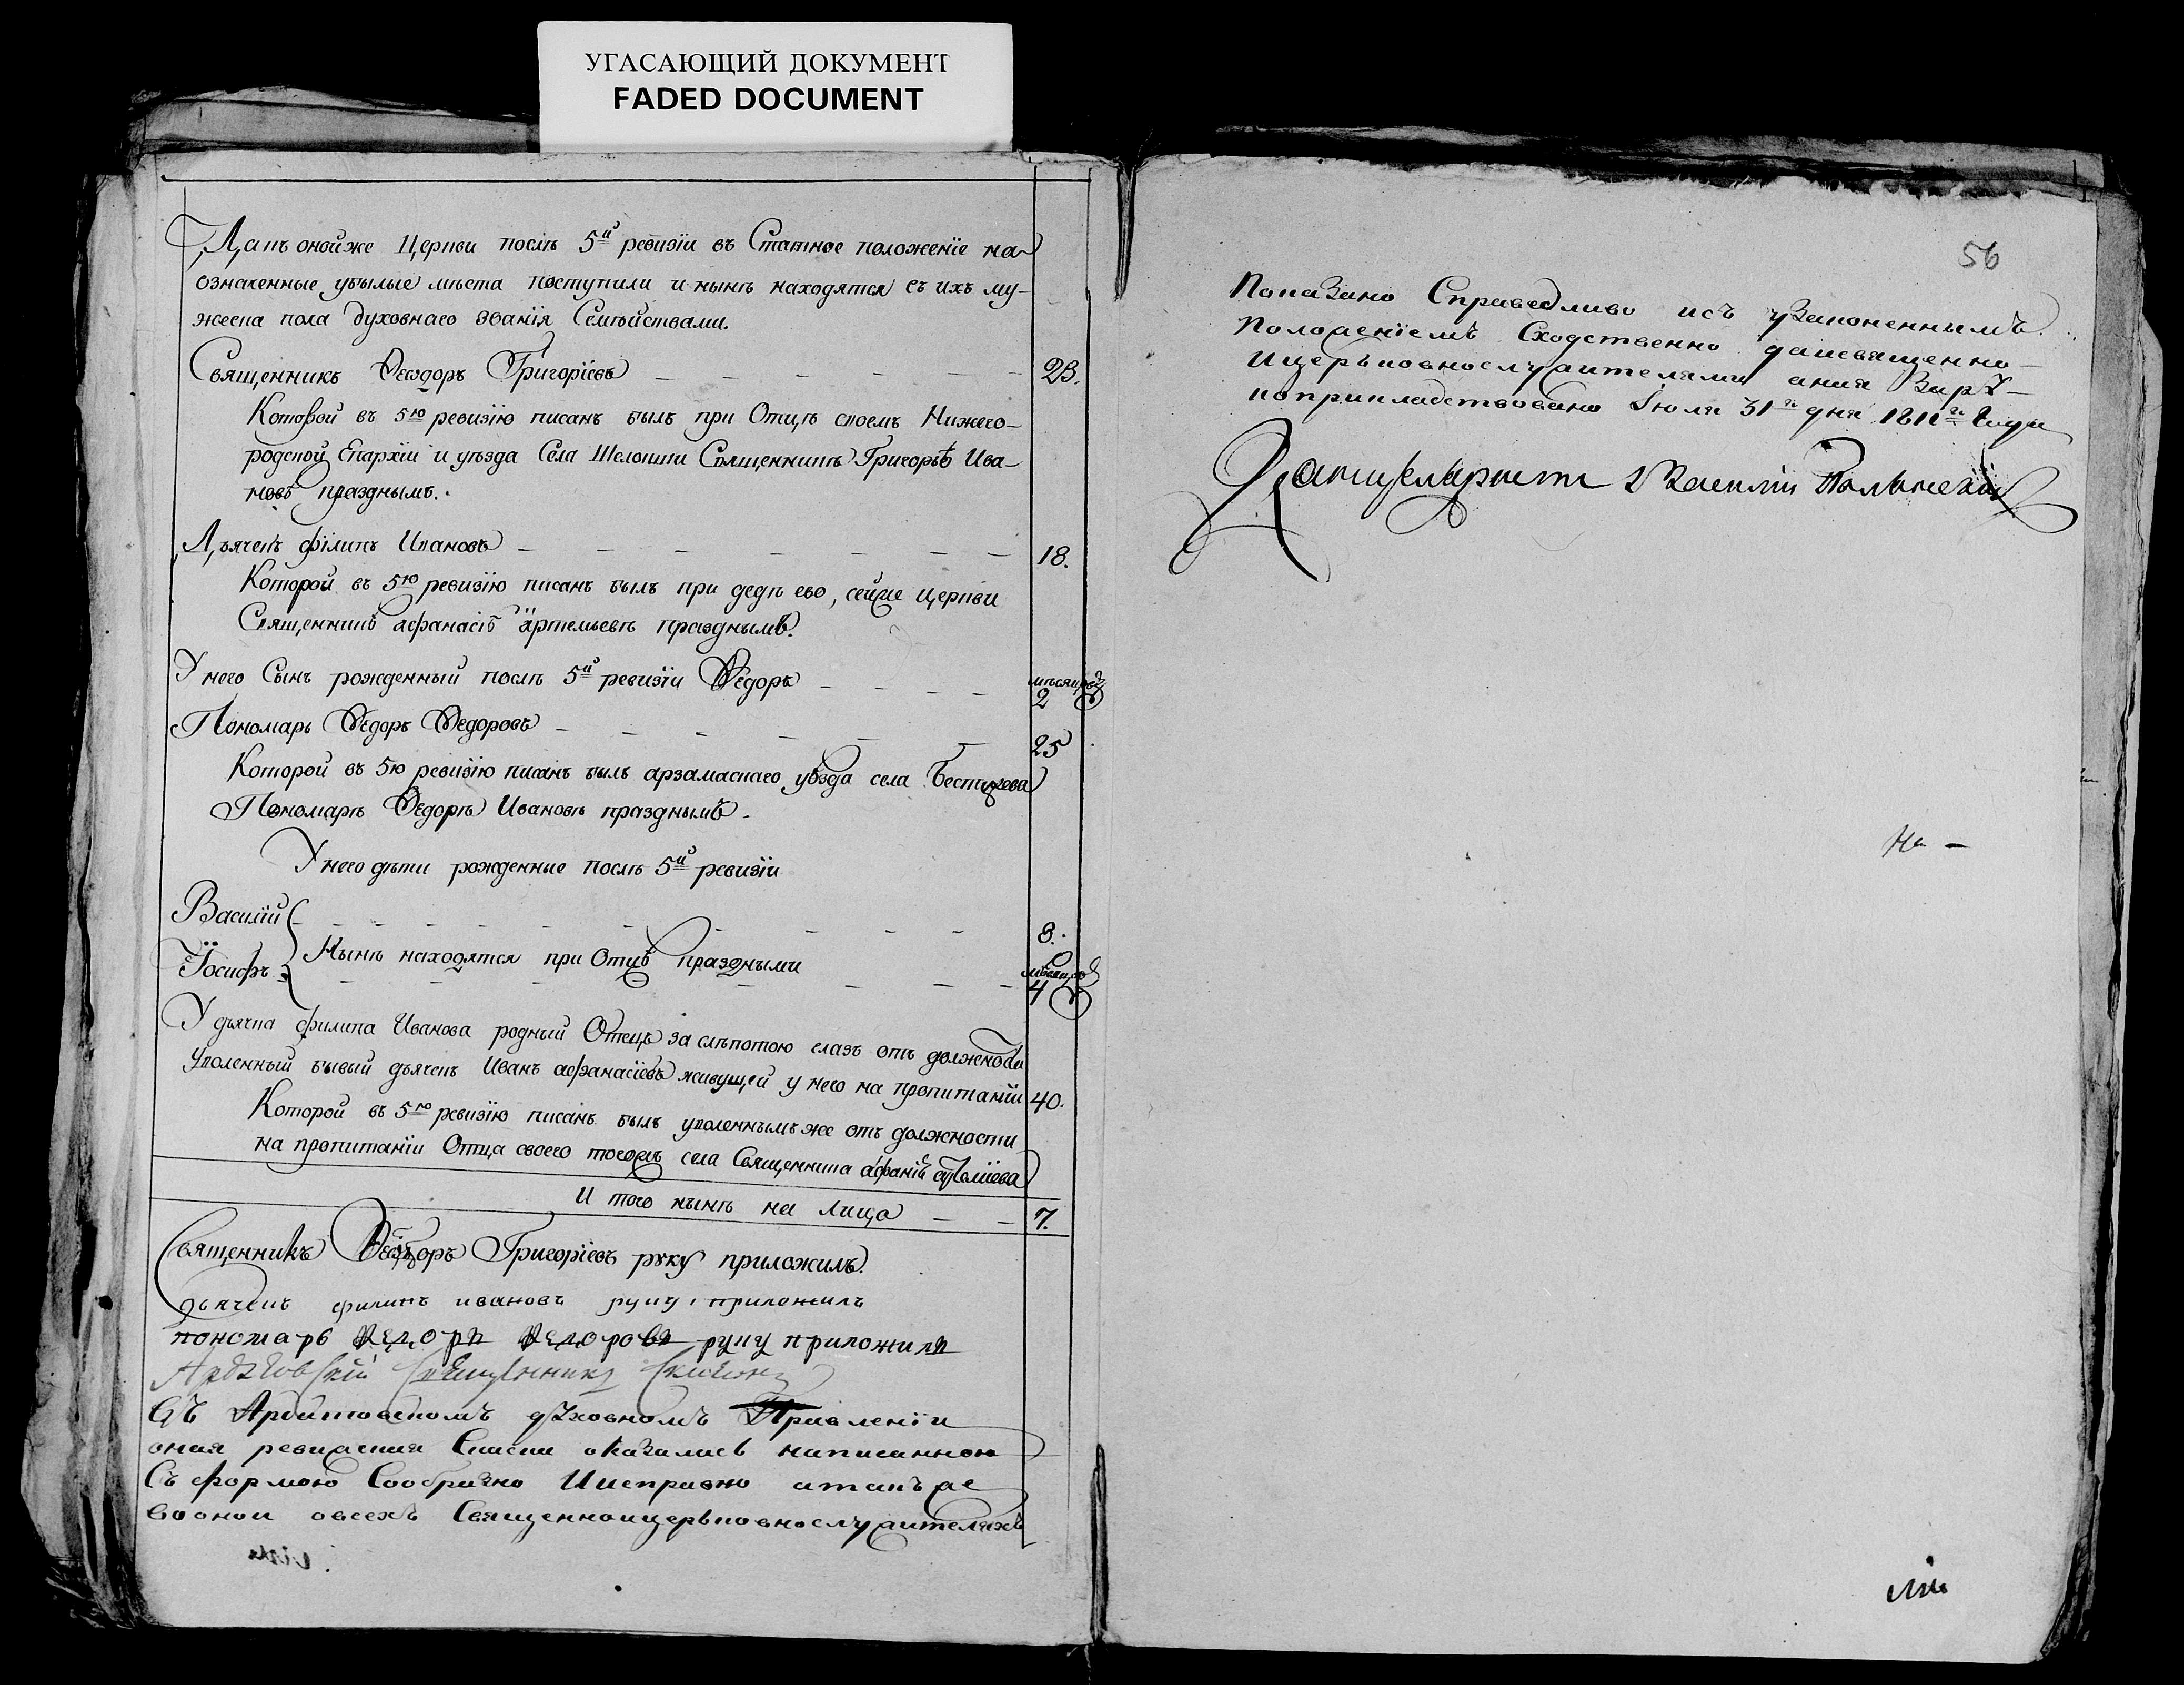 УГАСАЮЩИЙ ДОКУМЕНТ
FADED DOCUMENT
Да къ оной же Церкви послѣ 5й ревизїи въ Статное положенїе на
означенные убылые мѣста поступили и нынѣ находятся съ ихъ му-
жеска пола духовнаго званїя Семѣйствами.
Священникъ Ѳеодоръ Григорїевъ 23.
Которой въ 5ю ревизїю писанъ былъ при Отцѣ своемъ Нижего-
родской Епархїи и уѣзда Села Шелокши Священникѣ Григорьѣ Ива-
новѣ празднымъ.
Дьячекъ филипъ Ивановъ 18.
Которой въ 5ю ревизїю писанъ былъ при дедѣ его, сей же Церкви
Священникѣ афанасїѣ артемьевѣ празднымъ.
У него Сынъ рожденный послѣ 5й ревизїи Ѳедоръ мѣсяцовъ
2
Пономарь Ѳедоръ Ѳедоровъ 25
Которой въ 5ю ревизїю писанъ былъ арзамаскаго уѣзда села
Пономарѣ Ѳедорѣ Ивановѣ празднымъ.
У него дѣти рожденные послѣ 5й ревизїи
Василїй 8.
Нынѣ находятся при Отцѣ праздными
Їосифъ мѣсяцовъ
4
У дьячка филипа Иванова родный Отецъ за слѣпотою глазъ отъ должности
уволенный бывый дьячекъ Иванъ афанасїевъ живущей у него на пропитанїи 40.
Которой въ 5ю ревизїю писанъ былъ уволеннымъ же отъ должности
на пропитанїи Отца своего тогожъ села Священника
И того нынѣ на лицо 7.
Священникъ Ѳеодоръ Григорїевъ руку приложилъ.
дьячекъ филипъ ивановъ руку приложилъ
пономарь Ѳедоръ Ѳедоровъ руку приложилъ
Священникъ
Въ Ардатовскомъ духовномъ Правленїи
оная ревиская Сказка оказалась написанною
Съ формою Сообразно Иисправно а такъ же
во оной овсехъ Священноицерьковнослужителяхъ
56
Показано Справедливо исъ узаконеннымъ
Положенїемъ Сходственно
Ицерьковнослужителями
Їюля 31го дня 1811го Года
Канцеляристъ Василїй
На -